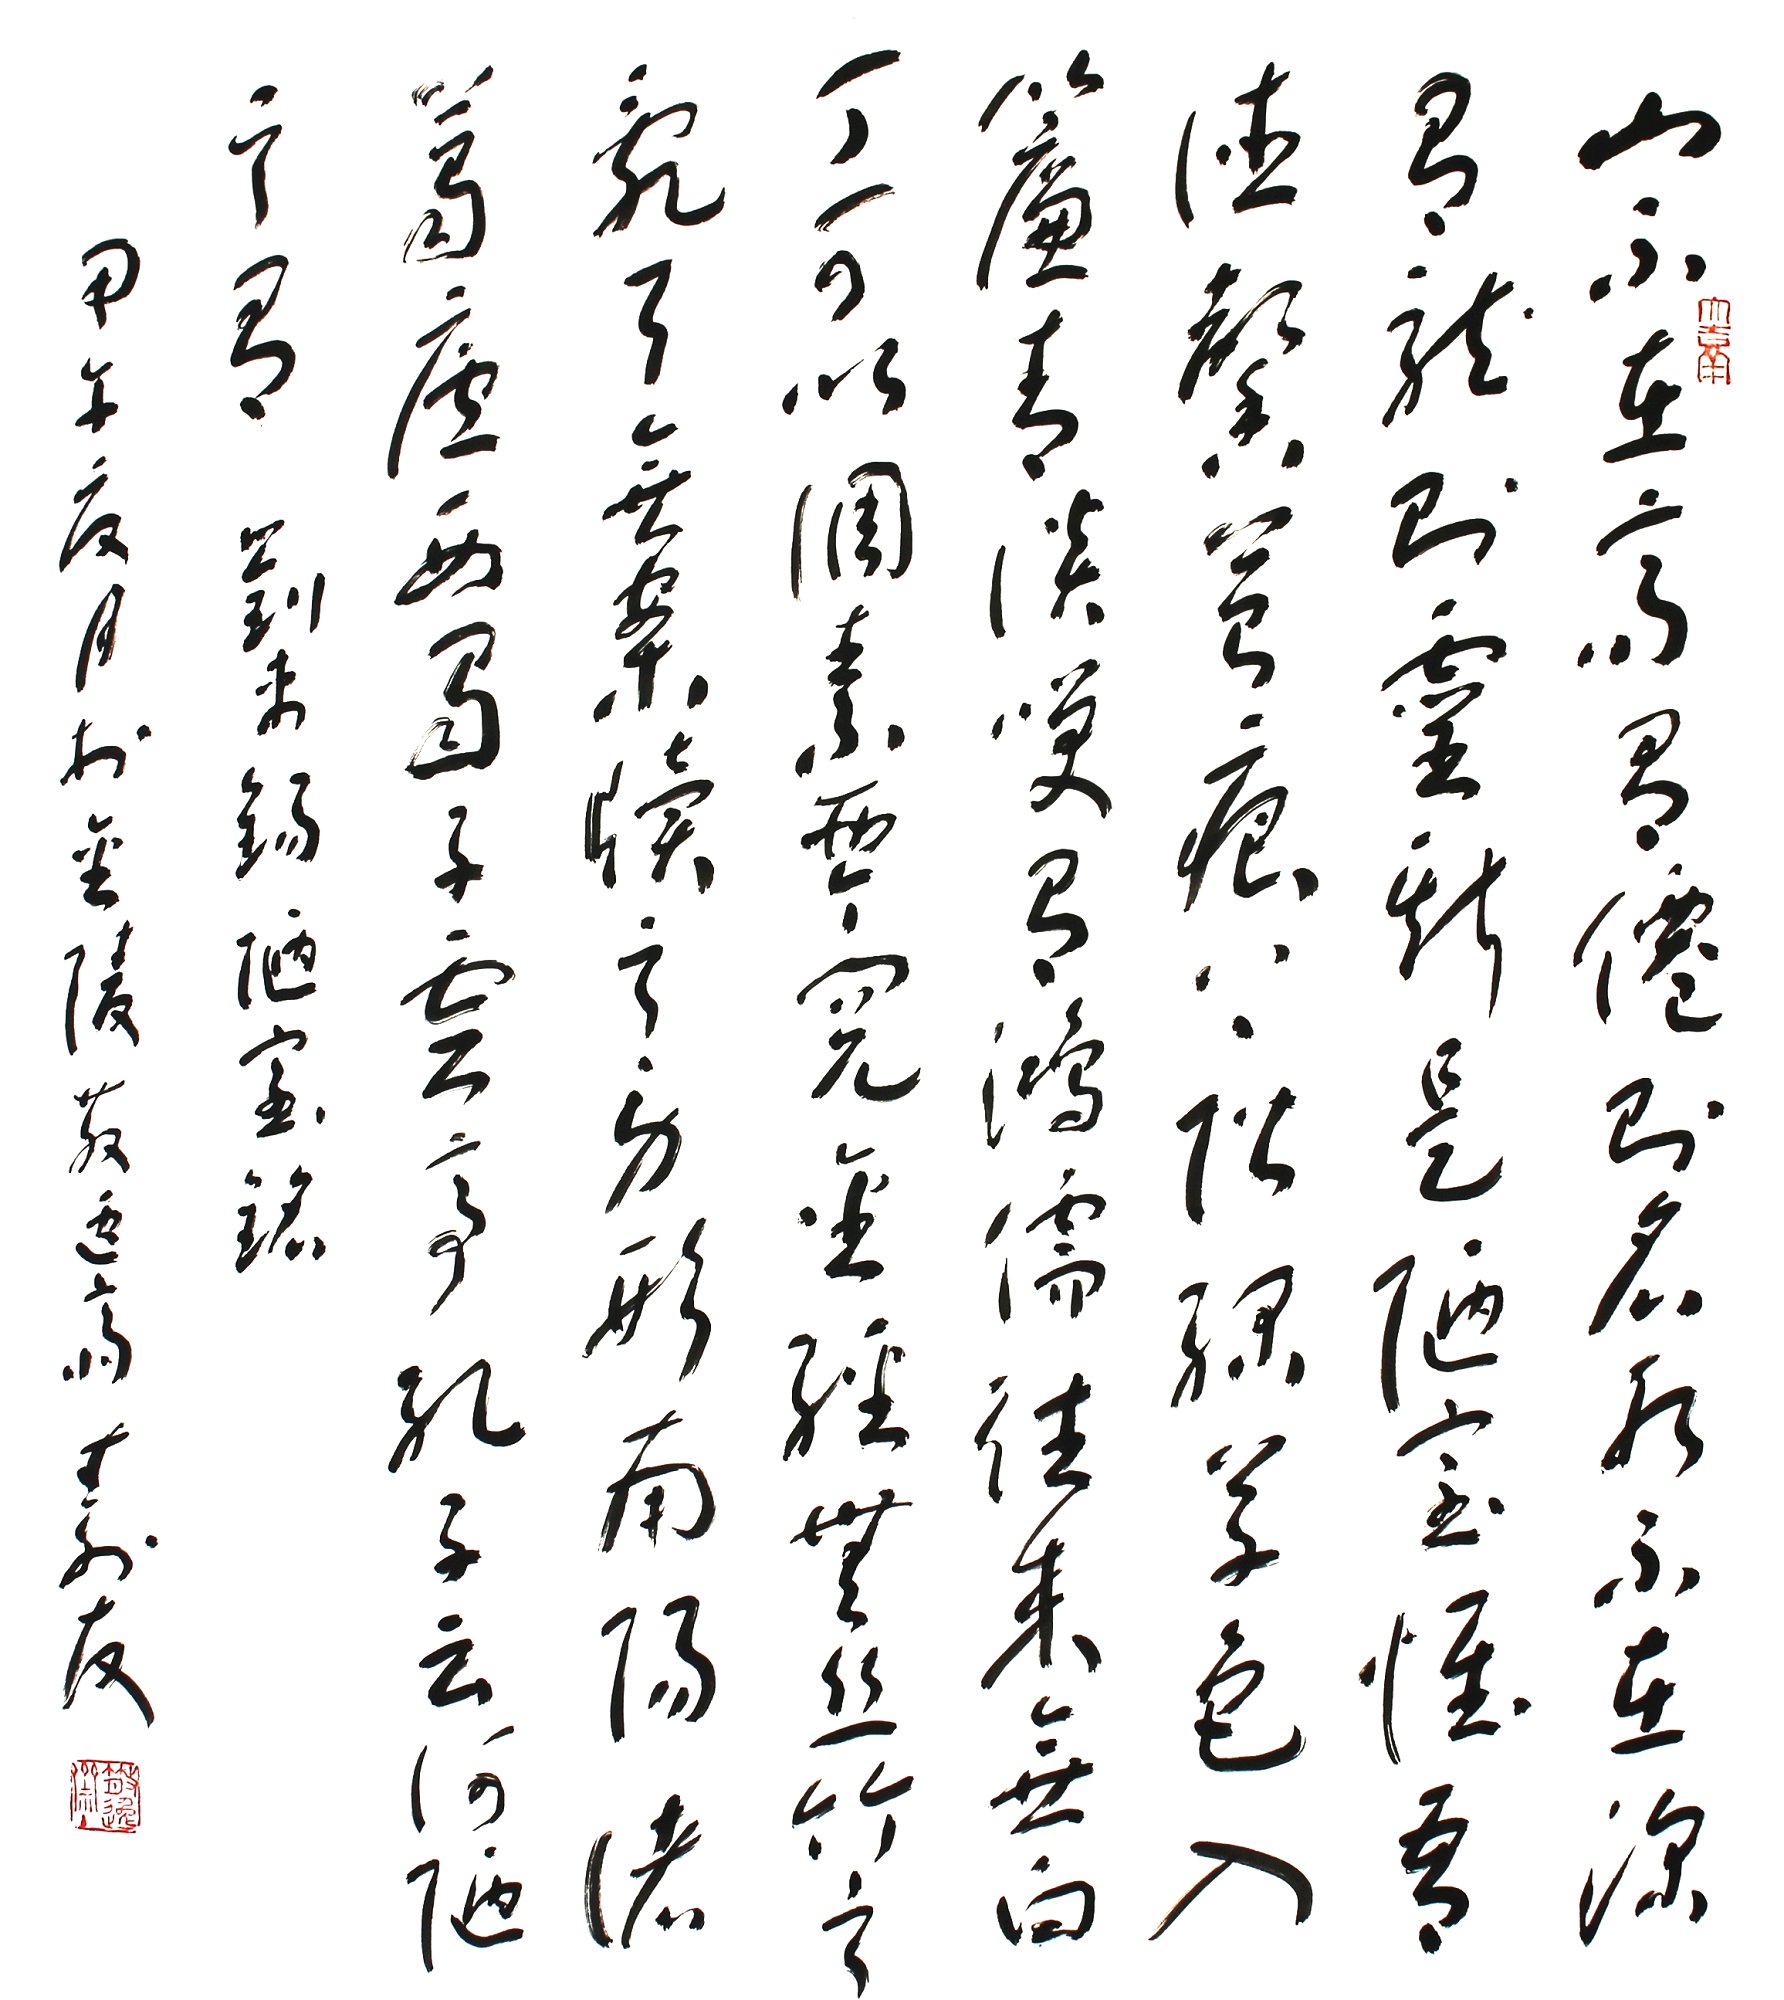 山不在高有僊則名水不在深
有龍則靈斯是陋室惟吾
德馨苔痕上階綠草色入
簾青談咲有鴻儒往來無白
丁可以調素琴閱金經無絲竹之
亂耳無案牘之勞形南陽諸
葛廬西蜀子雲亭孔子云何陋
之有 劉禹錫陋室銘
甲午夏月於金陵 齋 友